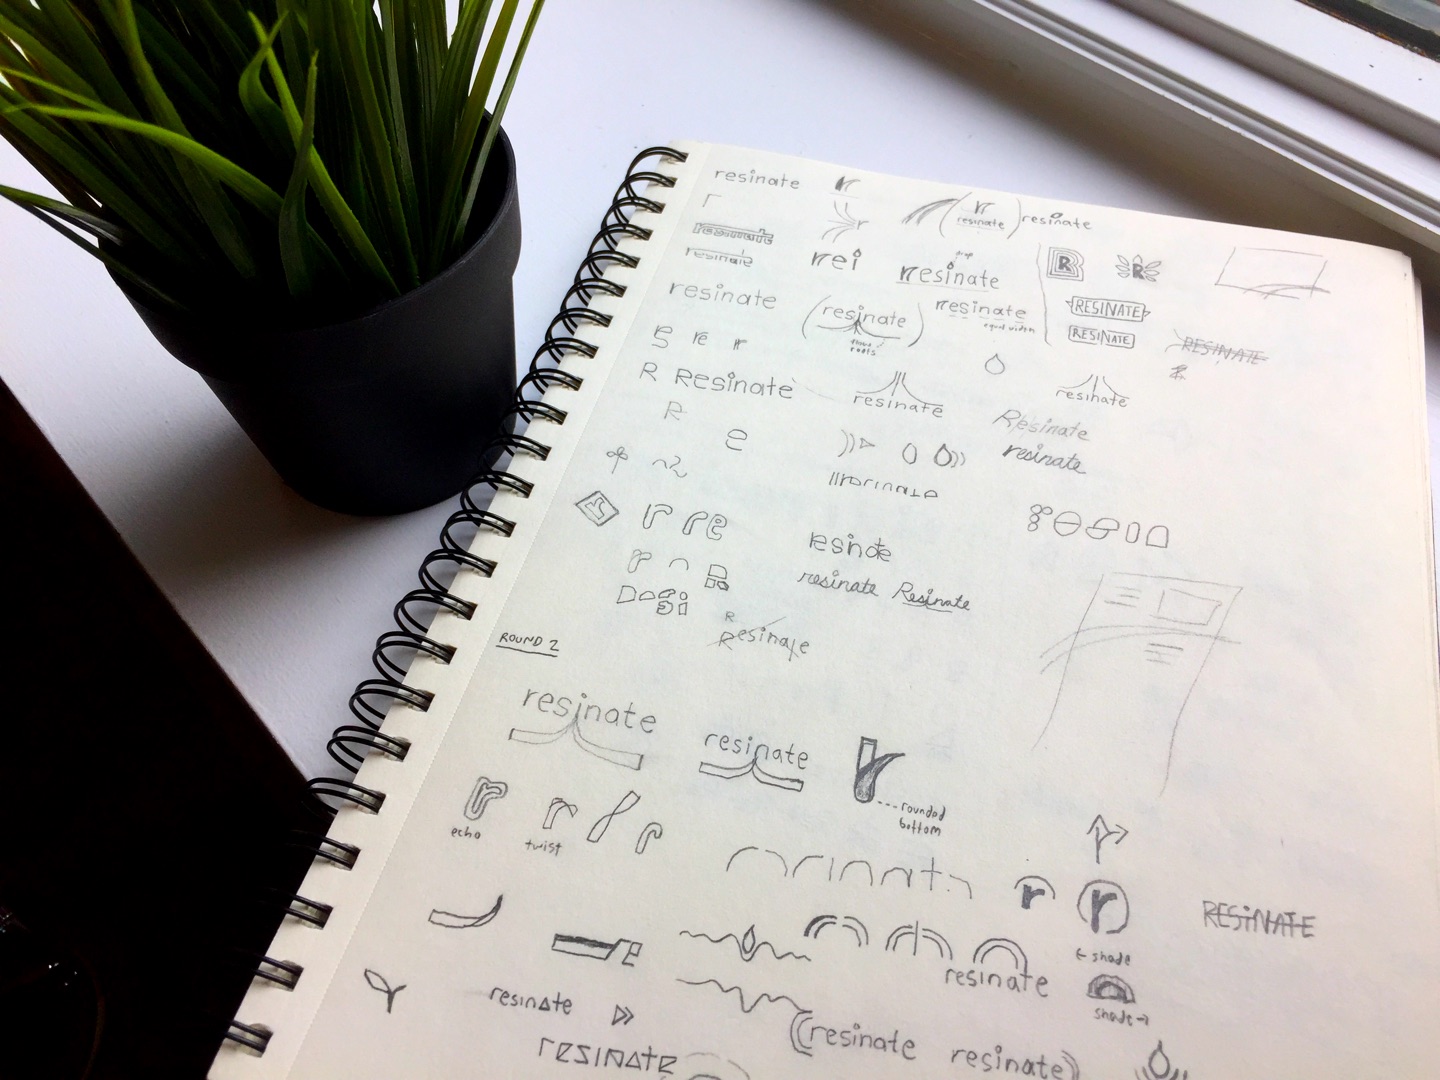 resinate r
r r ( r resinate ) resinate
resinate
resinate rei drop resinate R R
resinate (resinate) resinate RESINATE
three roots equal widths RESINATE RESINATE
re re r
R Resinate resinate resinate
R Resinate
e resinate
r re resinate
r resinate Resinate
R
Resinate
ROUND 2
resinate
resinate r
rounded bottom
r r r
echo twist
r r RESINATE
← shade
e resinate
shade →
resinate
resinate resinate
RESINATE